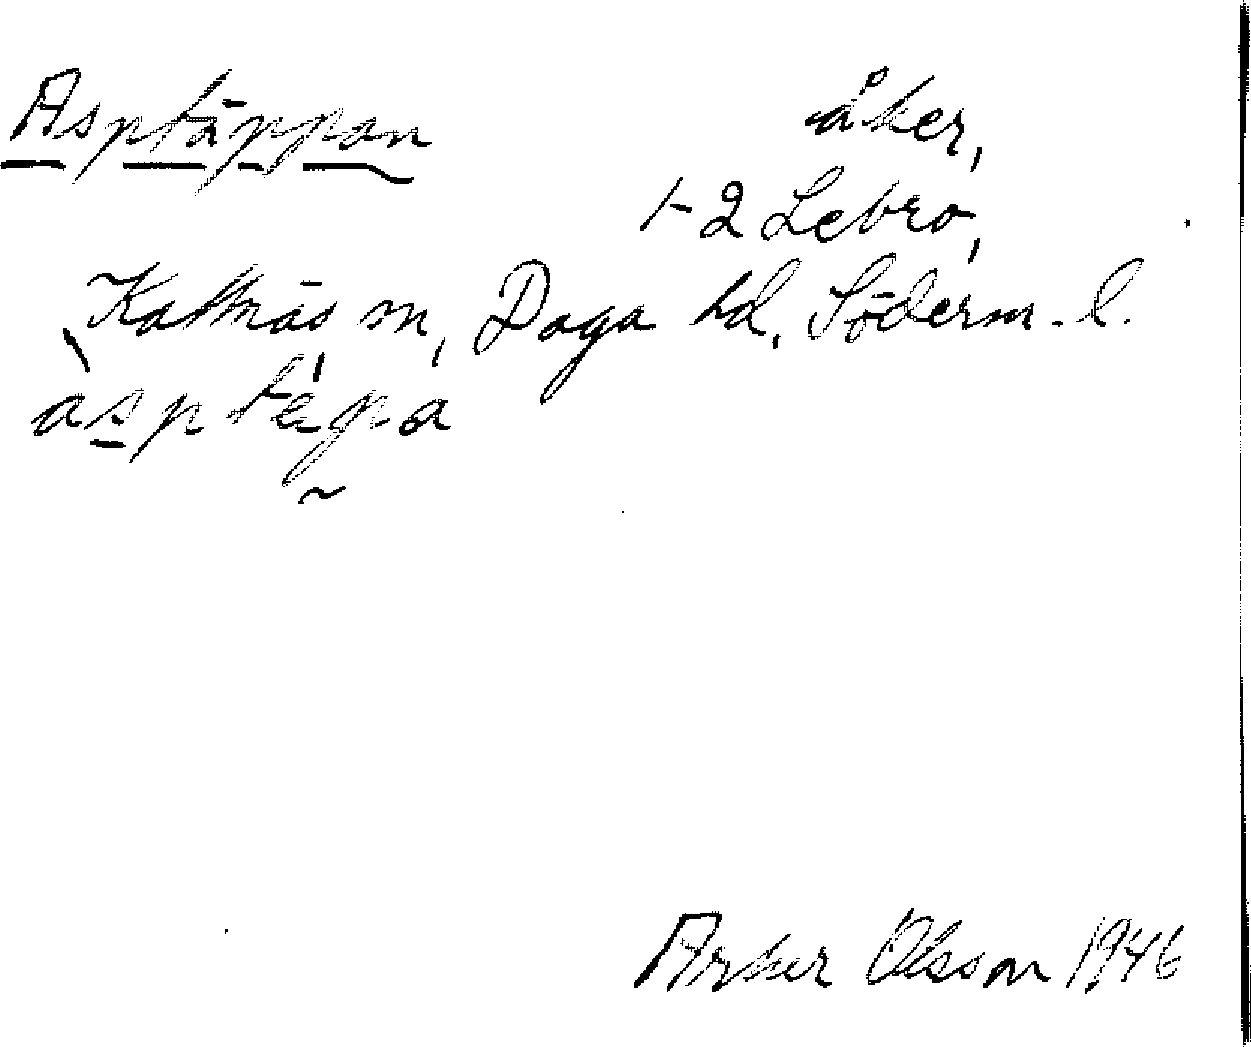 Asptäppan åker,
1-2 Lebro,
Kattnäs sn, Daga hd, Söderm. l.
asptepa
Olsson 1946